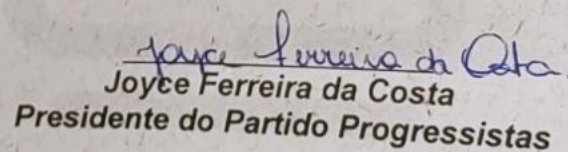 Joyce Ferreira da Costa
Joyce Ferreira da Costa
Presidente do Partido Progressistas